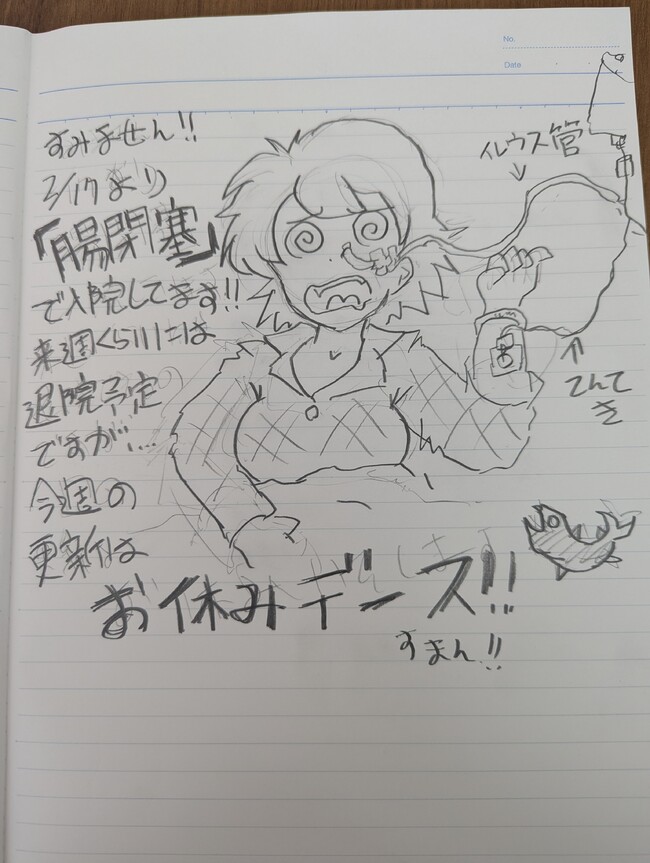 No.
Date
すみません!!
3/17より
「腸閉塞」
で入院してます!!
来週くらいには
退院予定
ですが…
今週の
更新は
お休みデース!!
すまん!!
イレウス管
てんてき